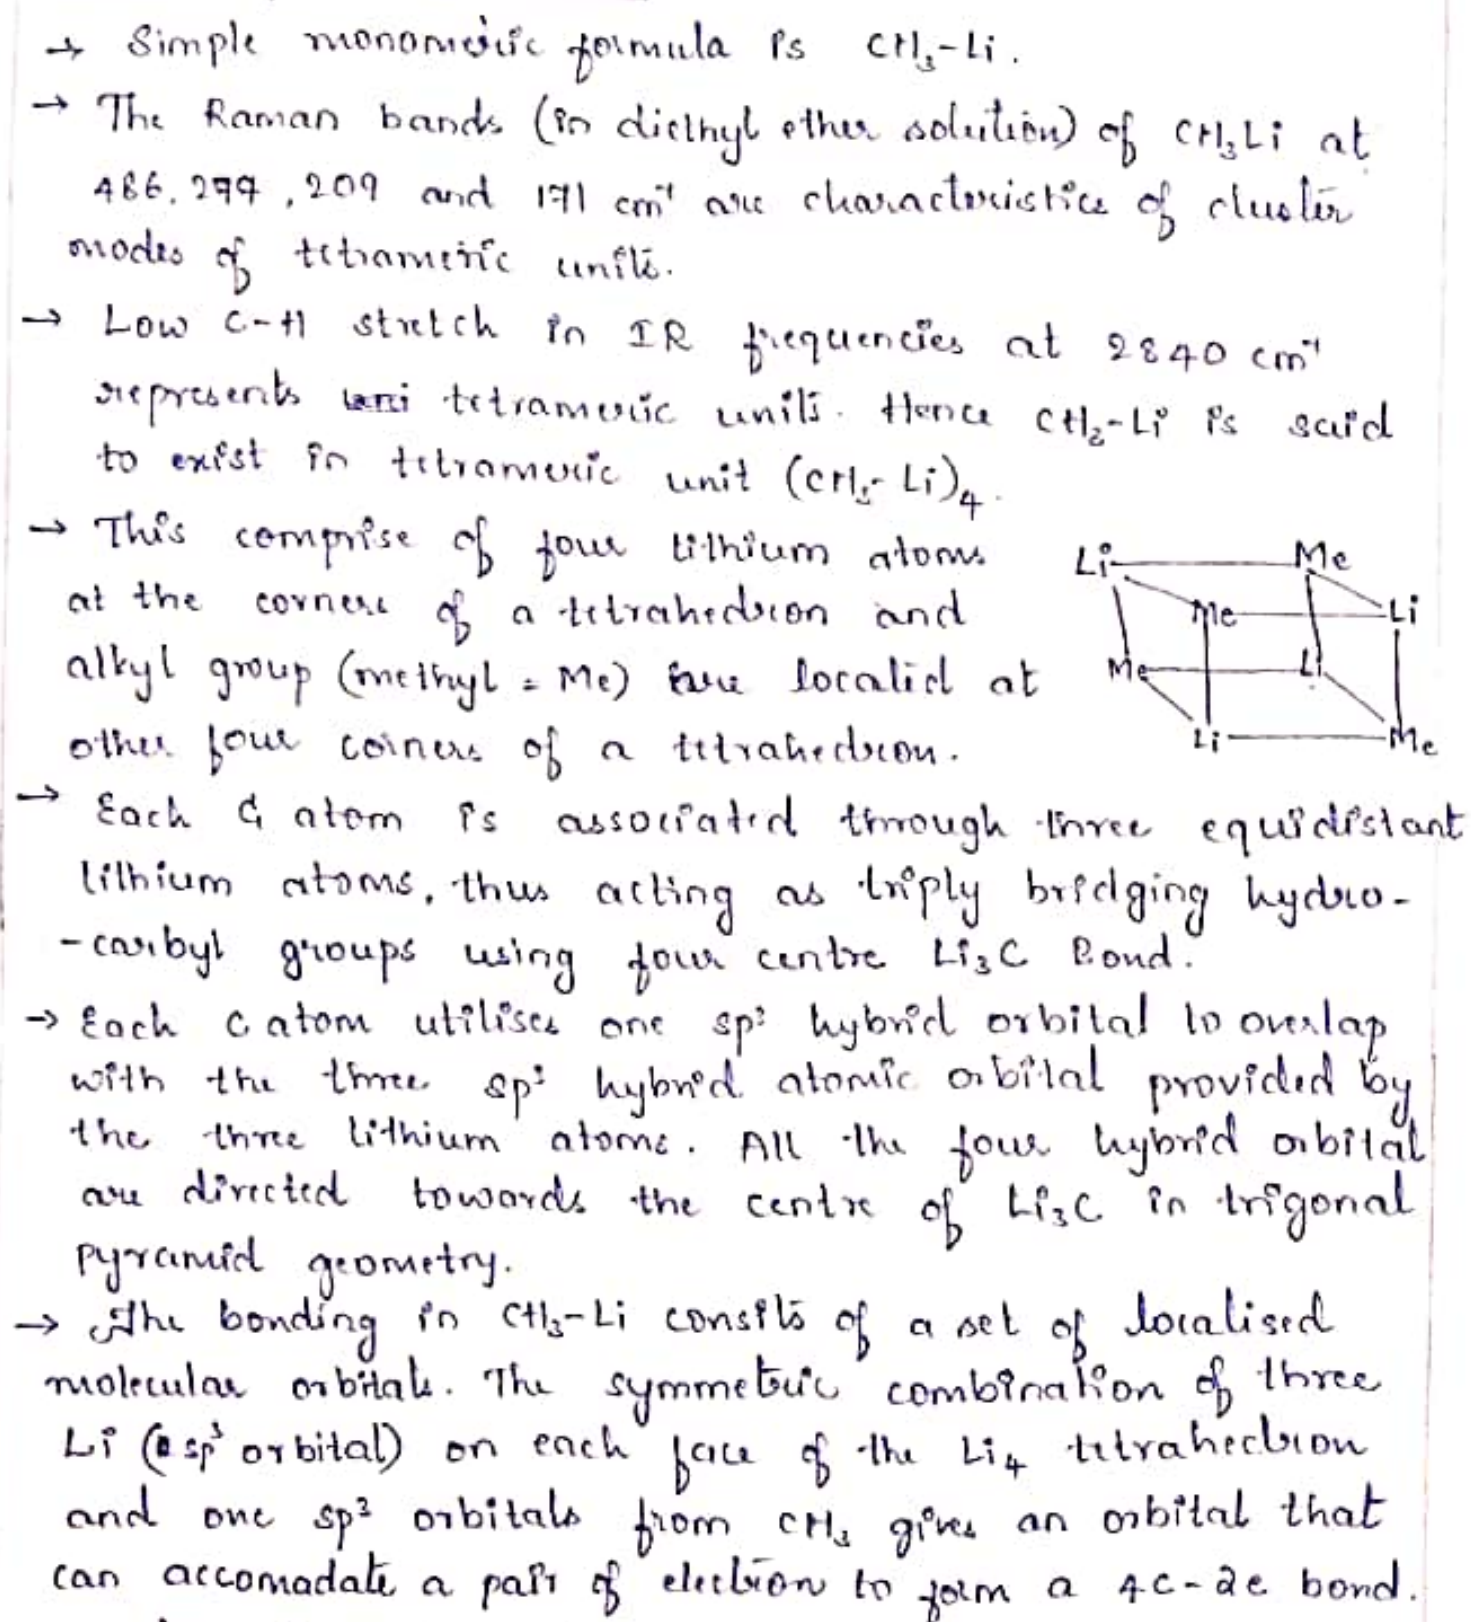 → Simple monomeric formula is CH₃-Li.
→ The Raman bands (in diethyl ether solution) of CH₃Li at
486, 299, 209 and 171 cm⁻¹ are characteristics of cluster
modes of tetrameric units.
→ Low C-H stretch in IR frequencies at 2840 cm⁻¹
represents tetrameric units. Hence CH₃-Li is said
to exist in tetrameric unit (CH₃-Li)₄.
→ This comprise of four lithium atoms
at the corners of a tetrahedron and
alkyl group (methyl = Me) are localied at
other four corners of a tetrahedron.
Li Me
Me Li
Me Li
Li Me
→ Each C atom is associated through three equidistant
lithium atoms, thus acting as triply bridging hydro-
-carbyl groups using four centre Li₃C Bond.
→ Each C atom utilises one sp³ hybrid orbital to overlap
with the three sp³ hybrid atomic orbital provided by
the three lithium atoms. All the four hybrid orbital
are directed towards the centre of Li₃C in trigonal
pyramid geometry.
→ The bonding in CH₃-Li consits of a set of localised
molecular orbitals. The symmetric combination of three
Li (sp³ orbital) on each face of the Li₄ tetrahedron
and one sp³ orbitals from CH₃ gives an orbital that
can accomadate a pair of electron to form a 4c-2e bond.